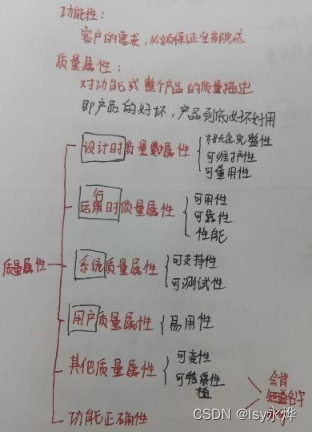 功能性：
客户的需求，必须保证全部完成
质量属性：
对功能或整个产品的质量描述
即产品的好坏，产品到底好不好用
质量属性
设计时质量属性
概念完整性
可维护性
可重用性
运行时质量属性
可用性
可靠性
性能
系统质量属性
可支持性
可测试性
用户质量属性
易用性
其他质量属性
可变性
可移植性
功能正确性
会背
知道名字
CSDN @lsy永烨